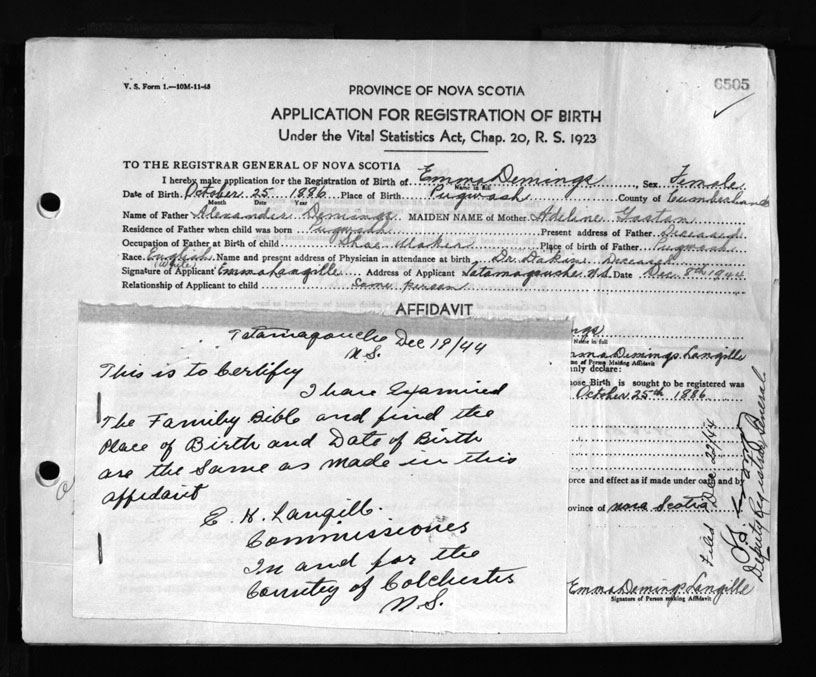 V. S. Form 1.—10M-11-43
6505
PROVINCE OF NOVA SCOTIA
APPLICATION FOR REGISTRATION OF BIRTH
Under the Vital Statistics Act, Chap. 20, R. S. 1923
TO THE REGISTRAR GENERAL OF NOVA SCOTIA
I hereby make application for the Registration of Birth of Emma Demings, Sex Female
Name in full
Date of Birth October 25 1886 Place of Birth Pugwash County of Cumberland
Month Date Year
Name of Father Alexander Demings MAIDEN NAME of Mother Adeline
Residence of Father when child was born Pugwash Present address of Father Deceased
Occupation of Father at Birth of child Shoe Maker Place of birth of Father Pugwash
Race English Name and present address of Physician in attendance at birth Dr. Deceased
(White)
Signature of Applicant Emma Langille Address of Applicant Tatamagouche N.S. Date Dec 8th 1944
Relationship of Applicant to child Same person
AFFIDAVIT
Tatamagouche Dec 19/44
N.S.
This is to Certify
I have Examined
The Family Bible and find the
Place of Birth and Date of Birth
are the Same as made in this
affidavit
E. K. Langill.
Commissioner
In and for the
County of Colchester
N.S.
ngs
Name in full
mma Demings Langille
me of Person Making Affidavit
nly declare:
hose Birth is sought to be registered was
October 25th 1886
orce and effect as if made under oath and by
ovince of Nova Scotia
Emma Demings Langille
Signature of Person making Affidavit
Filed Dec. 22/44
Deputy Registrar General